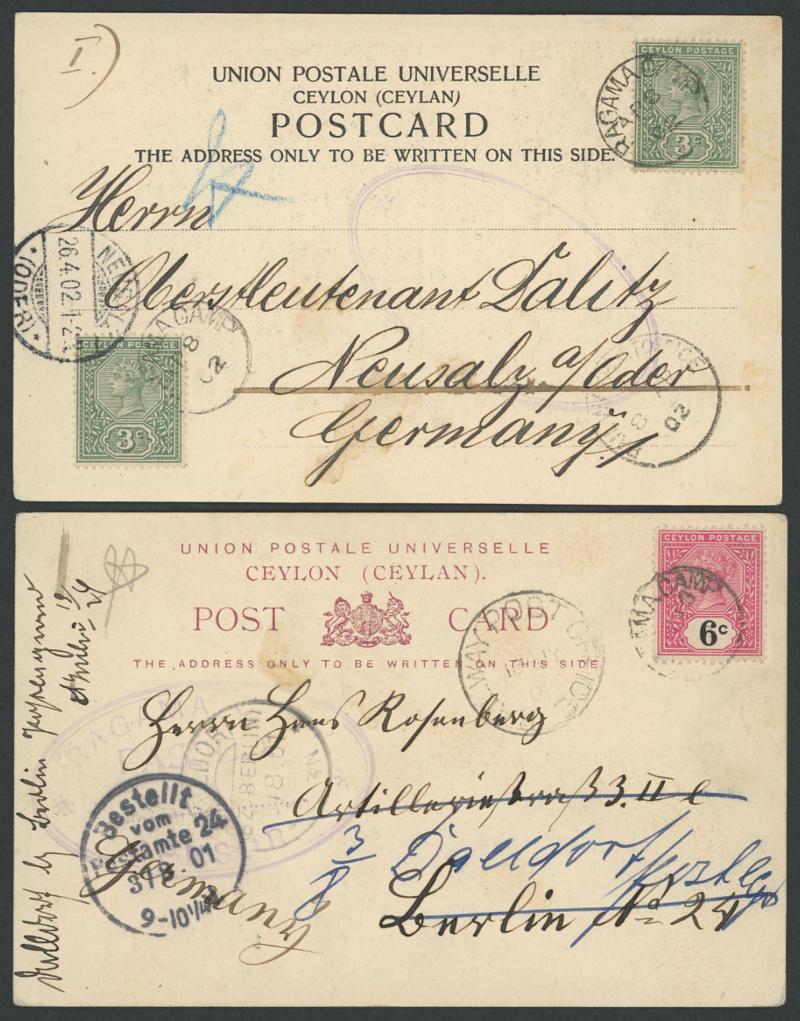 I.)
CEYLON POSTAGE
3c
RAGAMA CAMP
UNION POSTALE UNIVERSELLE
CEYLON (CEYLAN)
POSTCARD
THE ADDRESS ONLY TO BE WRITTEN ON THIS SIDE.
Herrn
Oberstleutenant Dalitz
Neusalz a/Oder
Germany
(ODER)
26.4.02
CAMP
02
8
02
CEYLON POSTAGE
3c
UNION POSTALE UNIVERSELLE
CEYLON (CEYLAN).
POST CARD
THE ADDRESS ONLY TO BE WRITTEN ON THIS SIDE.
CEYLON POSTAGE
6c
CAMP
WAY POST OFFICE
RAGAMA
BERLIN
Herrn Hans Rosenberg
Artilleriestraß 3. II
3/8 Dalldorf
Berlin No 24
Germany
Bestellt
vom
Postamte 24
01
9-10 1/4
Dalldorf by Berlin